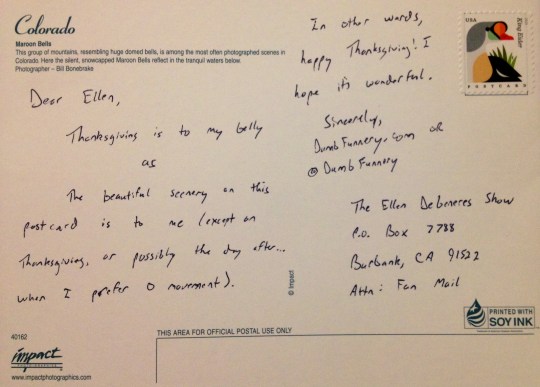 Colorado
Maroon Bells
This group of mountains, resembling huge domed bells, is among the most often photographed scenes in
Colorado. Here the silent, snowcapped Maroon Bells reflect in the tranquil waters below.
Photographer – Bill Bonebrake
Dear Ellen,
Thanksgiving is to my belly
as
The beautiful scenery on this
postcard is to me (except on
Thanksgiving, or possibly the day after...
when I prefer 0 movement).
In other words,
happy Thanksgiving! I
hope it's wonderful.
Sincerely,
DumbFunnery.com or
@DumbFunnery
USA
King Eider
POSTCARD
The Ellen DeGeneres Show
P.O. Box 7788
Burbank, CA 91522
Attn: Fan Mail
© Impact
PRINTED WITH
SOY INK
40162
THIS AREA FOR OFFICIAL POSTAL USE ONLY
impact
www.impactphotographics.com